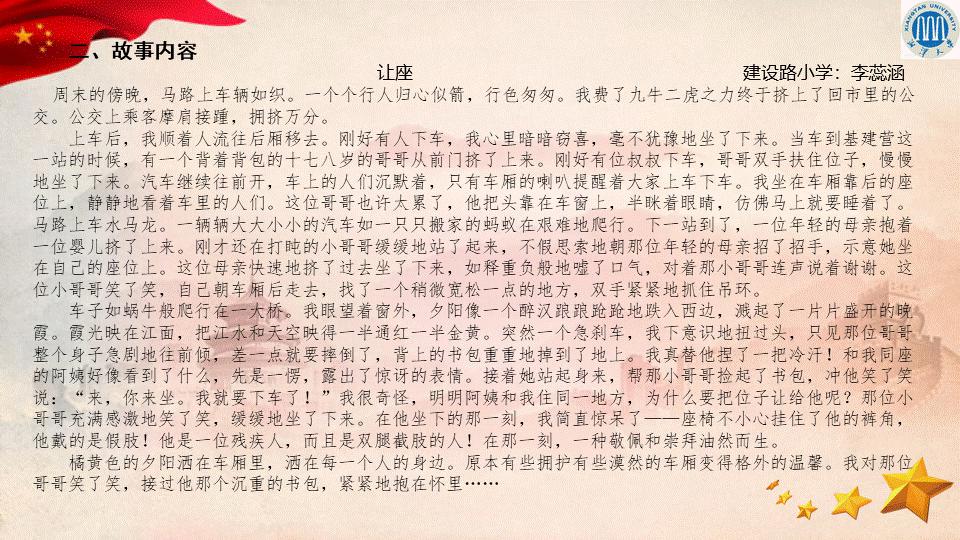 XIANGTAN UNIVERSITY
二、故事内容
让座 建设路小学：李蕊涵
周末的傍晚，马路上车辆如织。一个个行人归心似箭，行色匆匆。我费了九牛二虎之力终于挤上了回市里的公
交。公交上乘客摩肩接踵，拥挤万分。
上车后，我顺着人流往后厢移去。刚好有人下车，我心里暗暗窃喜，毫不犹豫地坐了下来。当车到基建营这
一站的时候，有一个背着背包的十七八岁的哥哥从前门挤了上来。刚好有位叔叔下车，哥哥双手扶住位子，慢慢
地坐了下来。汽车继续往前开，车上的人们沉默着，只有车厢的喇叭提醒着大家上车下车。我坐在车厢靠后的座
位上，静静地看着车里的人们。这位哥哥也许太累了，他把头靠在车窗上，半眯着眼睛，仿佛马上就要睡着了。
马路上车水马龙。一辆辆大大小小的汽车如一只只搬家的蚂蚁在艰难地爬行。下一站到了，一位年轻的母亲抱着
一位婴儿挤了上来。刚才还在打盹的小哥哥缓缓地站了起来，不假思索地朝那位年轻的母亲招了招手，示意她坐
在自己的座位上。这位母亲快速地挤了过去坐了下来，如释重负般地嘘了口气，对着那小哥哥连声说着谢谢。这
位小哥哥笑了笑，自己朝车厢后走去，找了一个稍微宽松一点的地方，双手紧紧地抓住吊环。
车子如蜗牛般爬行在一大桥。我眼望着窗外，夕阳像一个醉汉踉踉跄跄地跌入西边，溅起了一片片盛开的晚
霞。霞光映在江面，把江水和天空映得一半通红一半金黄。突然一个急刹车，我下意识地扭过头，只见那位哥哥
整个身子急剧地往前倾，差一点就要摔倒了，背上的书包重重地掉到了地上。我真替他捏了一把冷汗！和我同座
的阿姨好像看到了什么，先是一愣，露出了惊讶的表情。接着她站起身来，帮那小哥哥捡起了书包，冲他笑了笑
说：“来，你来坐。我就要下车了！”我很奇怪，明明阿姨和我住同一地方，为什么要把位子让给他呢？那位小
哥哥充满感激地笑了笑，缓缓地坐了下来。在他坐下的那一刻，我简直惊呆了——座椅不小心挂住了他的裤角，
他戴的是假肢！他是一位残疾人，而且是双腿截肢的人！在那一刻，一种敬佩和崇拜油然而生。
橘黄色的夕阳洒在车厢里，洒在每一个人的身边。原本有些拥护有些漠然的车厢变得格外的温馨。我对那位
哥哥笑了笑，接过他那个沉重的书包，紧紧地抱在怀里……